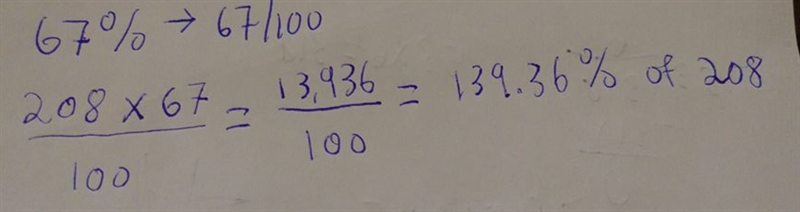 67% → 67/100
208 x 67 / 100 = 13,936 / 100 = 139.36% of 208